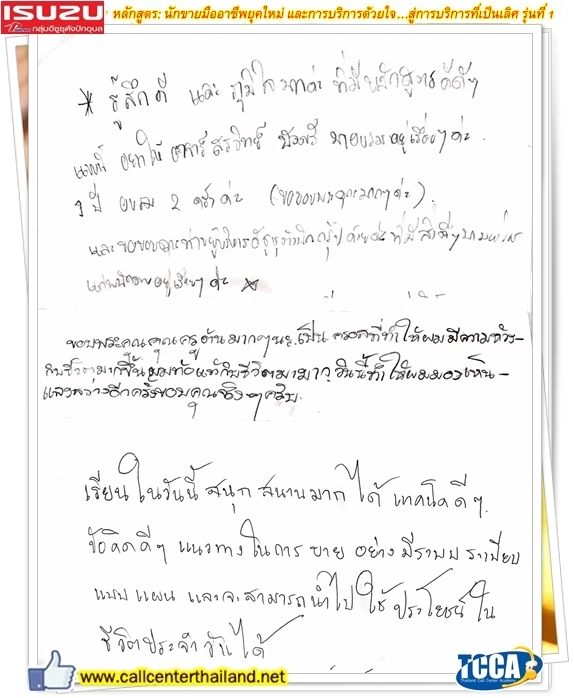 ISUZU
กลุ่มอีซูซุตังปักอุบล
หลักสูตร: นักขายมืออาชีพยุคใหม่ และการบริการด้วยใจ...สู่การบริการที่เป็นเลิศ รุ่นที่ 1
* รู้สึกดี และ ภูมิใจมากค่ะ ที่มีหลักสูตรดีๆ
แบบนี้ อยากให้ อาจารย์ มาอบรมอยู่เรื่อยๆ ค่ะ
1 ปี อบรม 2 ครั้งค่ะ (ขอขอบพระคุณมากๆ ค่ะ).
และขอขอบคุณท่านผู้บริหารอีซูซุ ด้วยค่ะ ที่มีสิ่งดีๆ
แก่พนักงานอยู่เรื่อยๆ ค่ะ *
ขอบพระคุณคุณครูต้นมากๆนะ เป็น ครอสที่ทำให้ผมมีความหวัง-
กับชีวิตมากขึ้น ผมท้อแท้กับชีวิตมามาก วันนี้ทำให้ผมมองเห็น-
แสงสว่างอีกครั้งขอบคุณจริงๆครับ.
เรียนในวันนี้ สนุก สนานมาก ได้ เทคนิคดีๆ.
ข้อคิดดีๆ แนวทางในการ ขาย อย่าง มีระบบ ระเบียบ
แบบ แผน และจะสามารถนำไป ใช้ ประโยชน์ ใน
ชีวิตประจำ วันได้
www.callcenterthailand.net
TCCA
Thailand Call Center Academy